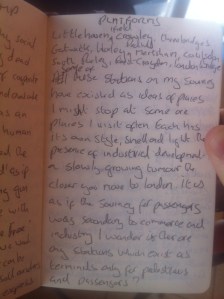 PLATFORMS
Littlehaven, Crawley, Three Bridges,
Gatwick, Horley, Merstham, Coulsdon
South, Purley, East Croydon, London Bridge
these stations on my journey
have existed as ideas of places
I might stop at. Some are
places I visit often. Each has
its own style, smell and light. The
presence of industrial development
a slowly growing tumour the
closer you move to London. It is
as if the journey for passengers
was secondary to commerce and
industry. I wonder if there are
any stations which exist as
terminals only for pollution
and passengers?